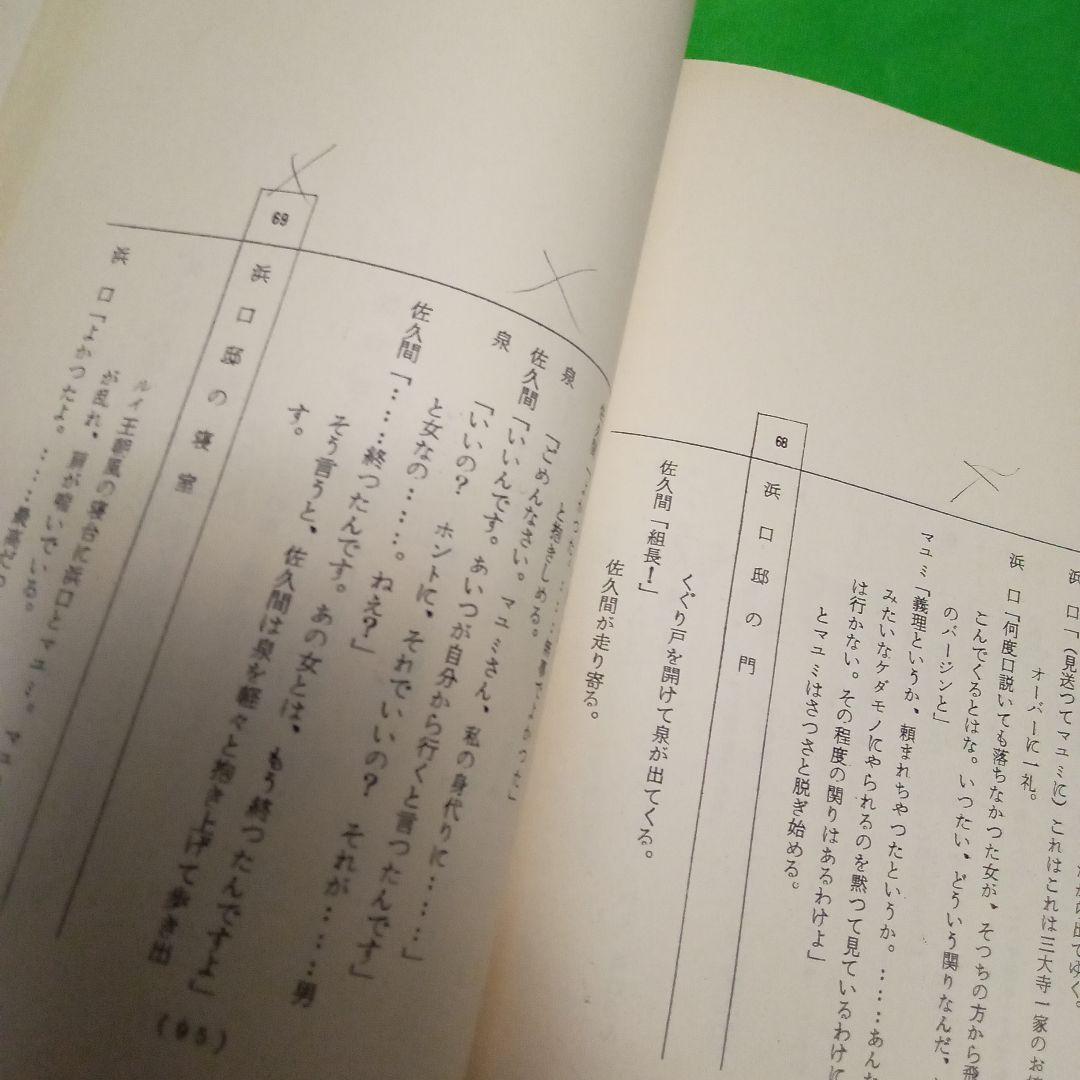 浜口「(見送つてマユミに)これはこれは三大寺一家のお
オーバーに一礼。
浜口「何度口説いても落ちなかつた女が、そつちの方から飛
こんでくるとはな。いつたい、どういう関りなんだ、
のバージンと」
マユミ「義理というか、頼まれちやつたというか。……あんた
みたいなケダモノにやられるのを黙つて見ているわけに
は行かない。その程度の関りはあるわけよ」
とマユミはさつさと脱ぎ始める。
68
浜口邸の門
くぐり戸を開けて泉が出てくる。
佐久間「組長!」
佐久間が走り寄る。
と抱きしめる。
泉「ごめんなさい。マユミさん、私の身代りに……」
佐久間「いいんです。あいつが自分から行くと言つたんです」
泉「いいの? ホントに、それでいいの? それが……男
と女なの……。ねえ?」
佐久間「……終つたんです。あの女とは、もう終つたんですよ」
そう言うと、佐久間は泉を軽々と抱き上げて歩き出
す。
69
浜口邸の寝室
ルイ王朝風の寝台に浜口とマユミ。
が乱れ、肩が喘いでいる。
浜口「よかつたよ。……最高だ
(95)